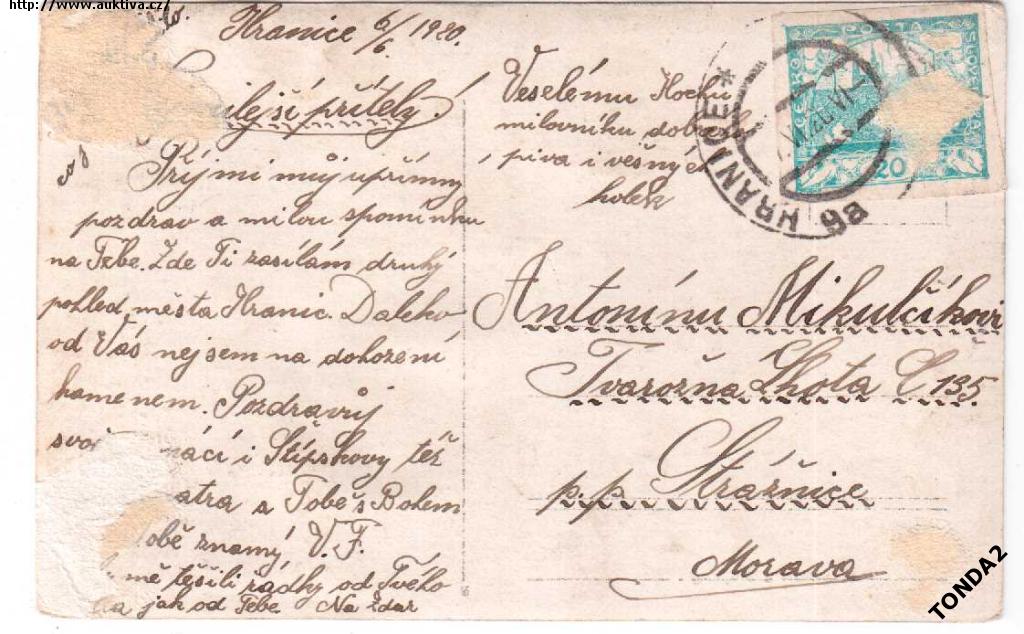 http://www.auktiva.cz/
Hranice 6/6 1920.
ilejší přítely!
Přijmi můj upřímny
pozdrav a milou spomínku
na Tebe. Zde Ti zasílám druhý
pohled města Hranic. Daleko
od Vás nejsem na dohození
kamenem. Pozdravuj
svo mácí i Štípskovy též
atra s Tobě s Bohem
obě znamý V. F.
mě těšili řádky od Tvého
jak od Tebe Na Zdar
Veselému Hochu
milovníku dobre
piva i
holek
Antonínu Mikulčíkovi
Tvarožna Lhota Č 135.
p. p. Strážnice
Morava
HRANICE *
VI 20
20
TONDA2